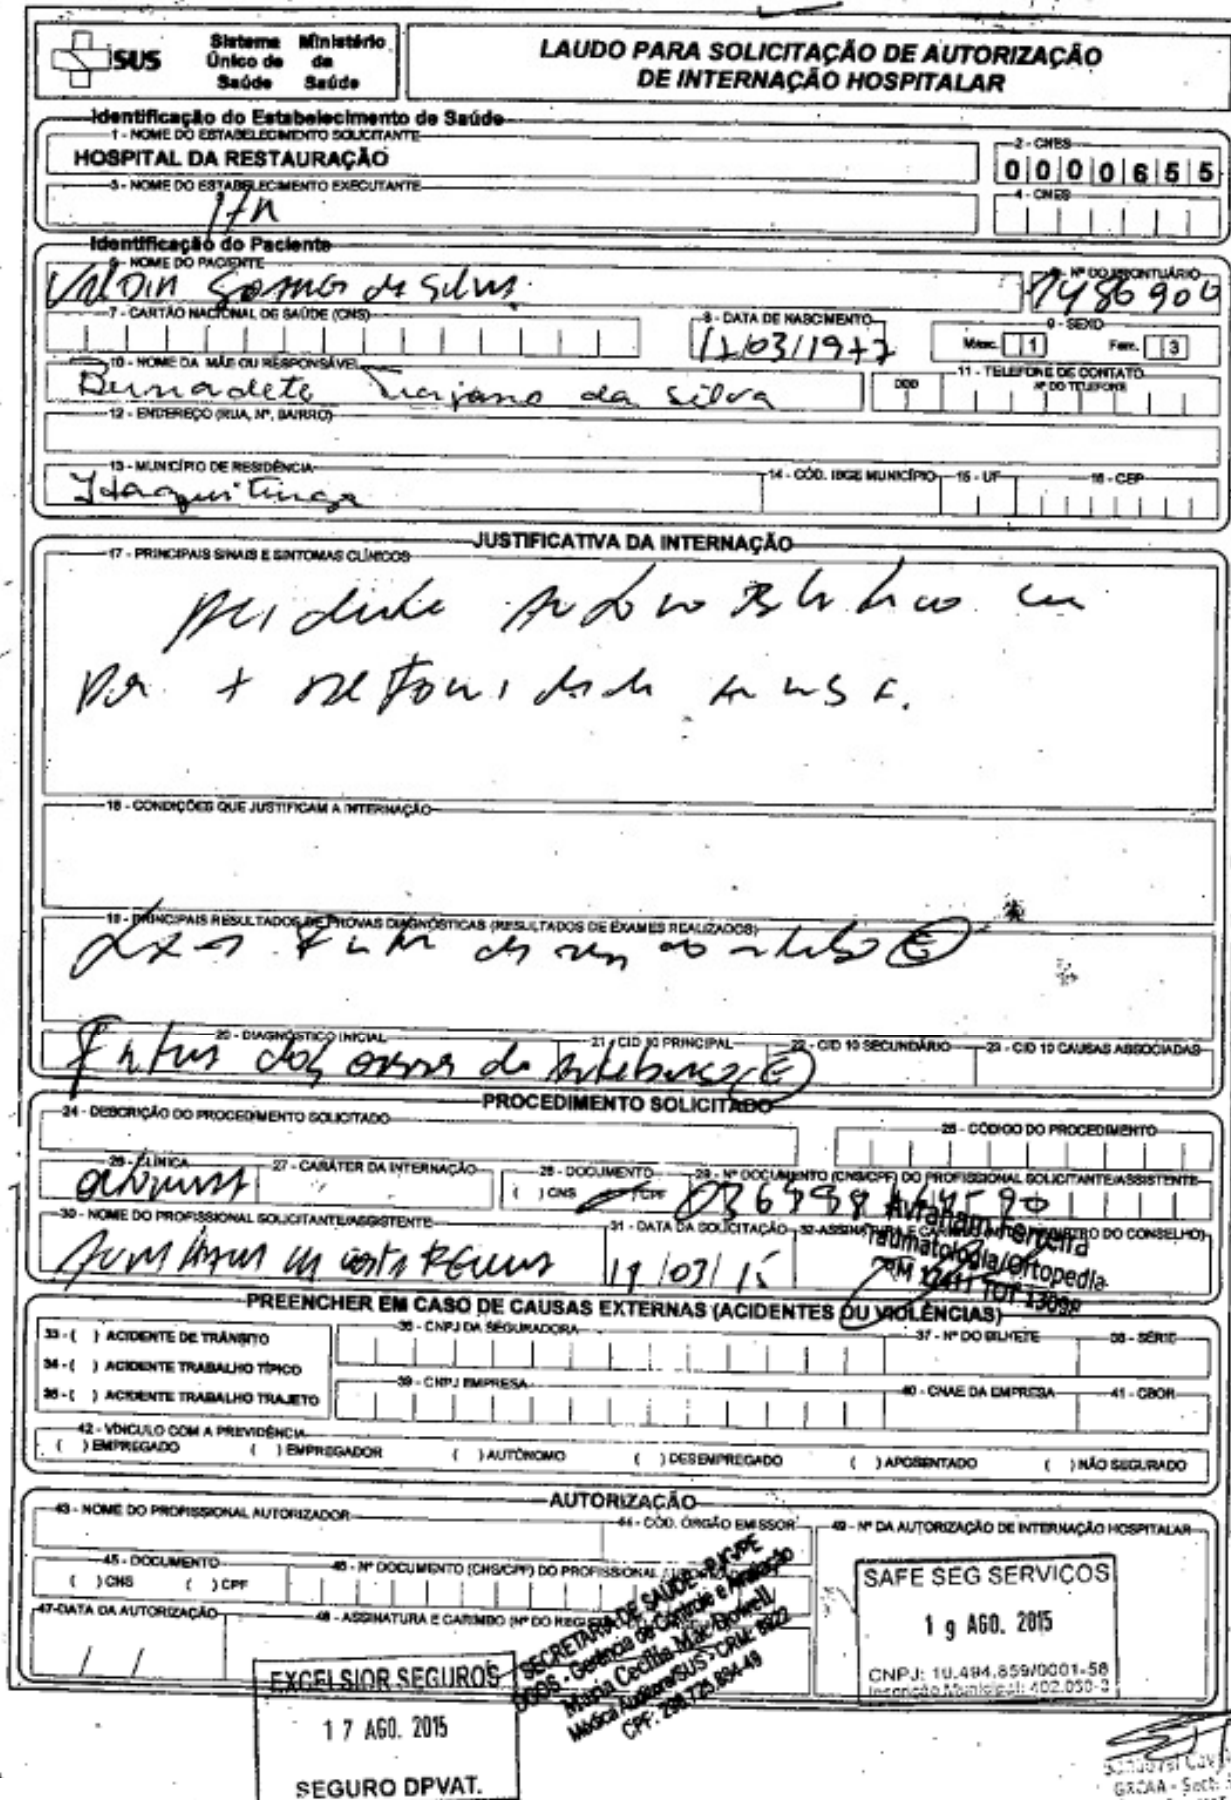 SUS
Sistema Único de Saúde
Ministério da Saúde
LAUDO PARA SOLICITAÇÃO DE AUTORIZAÇÃO
DE INTERNAÇÃO HOSPITALAR
Identificação do Estabelecimento de Saúde
1 - NOME DO ESTABELECIMENTO SOLICITANTE
HOSPITAL DA RESTAURAÇÃO
2 - CNES
0 0 0 0 6 5 5
3 - NOME DO ESTABELECIMENTO EXECUTANTE
4 - CNES
Identificação do Paciente
5 - NOME DO PACIENTE
da Silva
6 - Nº DO PRONTUÁRIO
1486900
7 - CARTÃO NACIONAL DE SAÚDE (CNS)
8 - DATA DE NASCIMENTO
/03/1977
9 - SEXO
Masc. 1
Fem. 3
10 - NOME DA MÃE OU RESPONSÁVEL
Bernadete Trajano da Silva
11 - TELEFONE DE CONTATO
DDD
Nº DO TELEFONE
12 - ENDEREÇO (RUA, Nº, BAIRRO)
13 - MUNICÍPIO DE RESIDÊNCIA
Itaquitinga
14 - CÓD. IBGE MUNICÍPIO
15 - UF
16 - CEP
JUSTIFICATIVA DA INTERNAÇÃO
17 - PRINCIPAIS SINAIS E SINTOMAS CLÍNICOS
Acidente Automobilístico com
Dor + deformidade
18 - CONDIÇÕES QUE JUSTIFICAM A INTERNAÇÃO
19 - PRINCIPAIS RESULTADOS DE PROVAS DIAGNÓSTICAS (RESULTADOS DE EXAMES REALIZADOS)
20 - DIAGNÓSTICO INICIAL
dos ossos do Antebraço (E)
21 - CID 10 PRINCIPAL
22 - CID 10 SECUNDÁRIO
23 - CID 10 CAUSAS ASSOCIADAS
PROCEDIMENTO SOLICITADO
24 - DESCRIÇÃO DO PROCEDIMENTO SOLICITADO
25 - CÓDIGO DO PROCEDIMENTO
26 - CLÍNICA
27 - CARÁTER DA INTERNAÇÃO
28 - DOCUMENTO
( ) CNS
CPF
29 - Nº DOCUMENTO (CNS/CPF) DO PROFISSIONAL SOLICITANTE/ASSISTENTE
30 - NOME DO PROFISSIONAL SOLICITANTE/ASSISTENTE
31 - DATA DA SOLICITAÇÃO
19/03/15
32-ASSINATURA E
DO CONSELHO)
Ferreira
Traumatologia/Ortopedia
PREENCHER EM CASO DE CAUSAS EXTERNAS (ACIDENTES OU VIOLÊNCIAS)
33 - ( ) ACIDENTE DE TRÂNSITO
34 - ( ) ACIDENTE TRABALHO TÍPICO
35 - ( ) ACIDENTE TRABALHO TRAJETO
36 - CNPJ DA SEGURADORA
37 - Nº DO BILHETE
38 - SÉRIE
39 - CNPJ EMPRESA
40 - CNAE DA EMPRESA
41 - CBOR
42 - VÍNCULO COM A PREVIDÊNCIA
( ) EMPREGADO
( ) EMPREGADOR
( ) AUTÔNOMO
( ) DESEMPREGADO
( ) APOSENTADO
( ) NÃO SEGURADO
AUTORIZAÇÃO
43 - NOME DO PROFISSIONAL AUTORIZADOR
44 - CÓD. ÓRGÃO EMISSOR
49 - Nº DA AUTORIZAÇÃO DE INTERNAÇÃO HOSPITALAR
45 - DOCUMENTO
( ) CNS
( ) CPF
46 - Nº DOCUMENTO (CNS/CPF) DO PROFISSIONAL
47-DATA DA AUTORIZAÇÃO
/ /
48 - ASSINATURA E CARIMBO (Nº DO
SECRETARIA DE SAÚDE
Gerência de Controle e Avaliação
Maria Cecília Mac Dowell
Médica Auditora/SUS - CRM: 8922
SAFE SEG SERVIÇOS
19 AGO. 2015
CNPJ: 10.494.859/0001-58
Inscrição Municipal: 402.050-3
EXCELSIOR SEGUROS
17 AGO. 2015
SEGURO DPVAT.